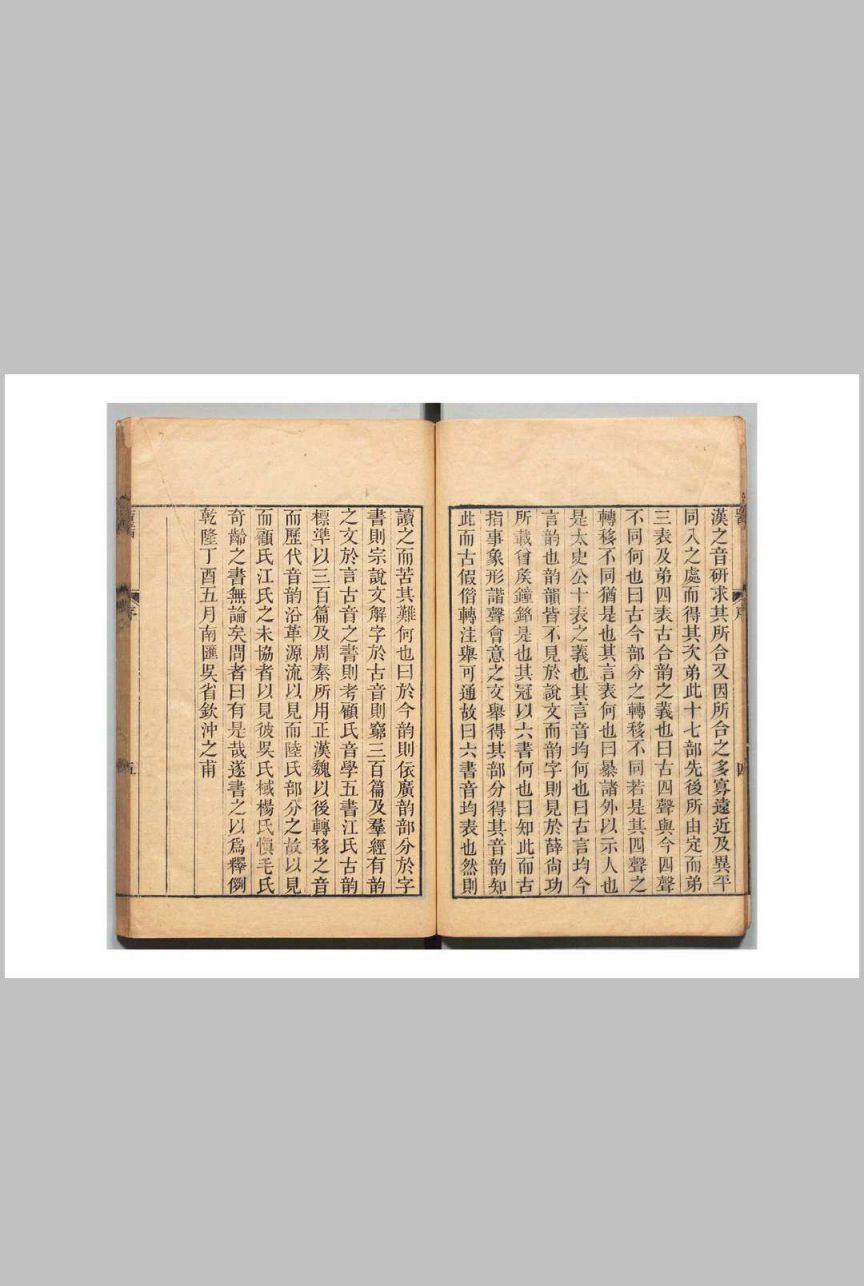 漢之音研求其所合又因所合之多寡遠近及異平
同入之處而得其次弟此十七部先後所由定而弟
三表及弟四表古合韵之義也曰古四聲與今四聲
不同何也曰古今部分之轉移不同若是其四聲之
轉移不同猶是也其言表何也曰㬥諸外以示人也
是太史公十表之義也其言音均何也曰古言均今
言韵也韵韻皆不見於說文而韵字則見於薛尙功
所載曾矦鐘銘是也其冠以六書何也曰知此而古
指事象形諧聲會意之文舉得其部分得其音韵知
此而古假借轉注舉可通故曰六書音均表也然則
讀之而苦其難何也曰於今韵則依廣韵部分於字
書則宗說文解字於古音則竆三百篇及羣經有韵
之文於言古音之書則考顧氏音學五書江氏古韵
標準以三百篇及周秦所用正漢魏以後轉移之音
而歷代音韵沿革源流以見而陸氏部分之故以見
而顧氏江氏之未協者以見彼吳氏棫楊氏愼毛氏
奇齡之書無論矣問者曰有是哉遂書之以爲釋例
乾隆丁酉五月南匯吳省欽沖之甫
序
五
序
四